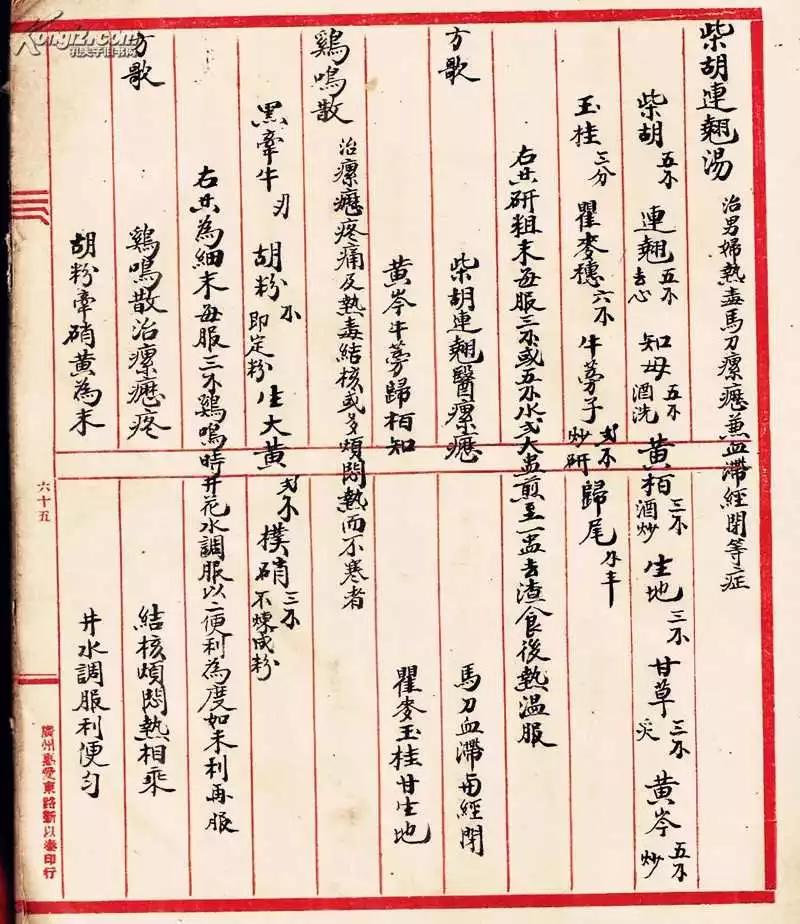 柴胡連翹湯 治男婦熱毒馬刀瘰癧兼血滯經閉等症
柴胡五錢 連翹五錢去心 知母五錢酒洗 黃柏三錢酒炒 生地三錢 甘草三錢炙 黃岑五錢炒
玉桂三分 瞿麥穗六錢 牛蒡子弍錢炒研 歸尾錢半
右共研粗末每服三錢或五錢水弍大盅煎至一盅去渣食後熱溫服
方歌 柴胡連翹醫瘰癧 馬刀血滯與經閉
黃岑牛蒡歸柏知 瞿麥玉桂甘生地
鷄鳴散 治瘰癧疼痛及熱毒結核或多煩悶熱而不寒者
黑牽牛 胡粉錢即定粉 生大黃弍錢 樸硝三錢不煉成粉
右共為細末每服三錢鷄鳴時井花水調服以二便利為度如未利再服
方歌 鷄鳴散治瘰癧疼 結核煩悶熱相乘
胡粉牽硝黃為末 井水調服利便勻
六十五
廣州惠愛東路新以泰印行
Kongfz.com
孔夫子旧书网